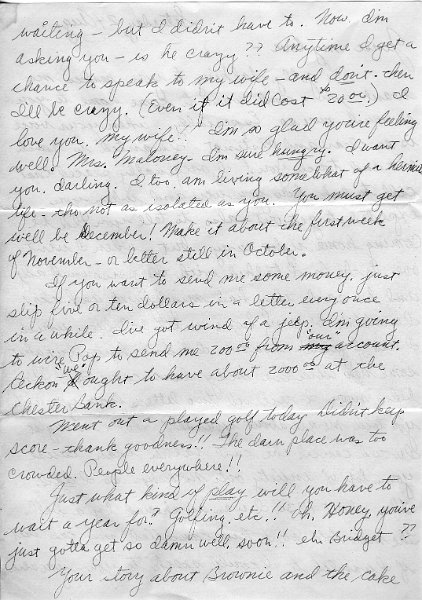 waiting - but I didn't have to. Now, I'm
asking you - is he crazy?? Anytime I get a
chance to speak to my wife - and don't - then
I'll be crazy. (Even if it did cost $20.00.) I
love you, my wife!! I'm so glad you're feeling
well. Mrs. Maloney - I'm sure hungry. I want
you, darling. I too, am living somewhat of a hermit
life - tho not as isolated as you. You must get
well be December! Make it about the first week
of November - or better still in October.
If you want to send me some money, just
slip five or ten dollars in a letter every once
in a while. I've got wind of a jeep. I'm going
to wire Pop to send me 200.00 from my "our" account.
Reckon I "we" ought to have about 2000.00 at the
Chester Bank.
Went out a played golf today. Didn't keep
score - thank goodness!! The darn place was too
crowded. People everywhere!!
Just what kind of play will you have to
wait a year for? Golfing, etc.!! Oh, Honey, you've
just gotta get so damn well, soon!! eh Bridget??
Your story about Brownie and the cake